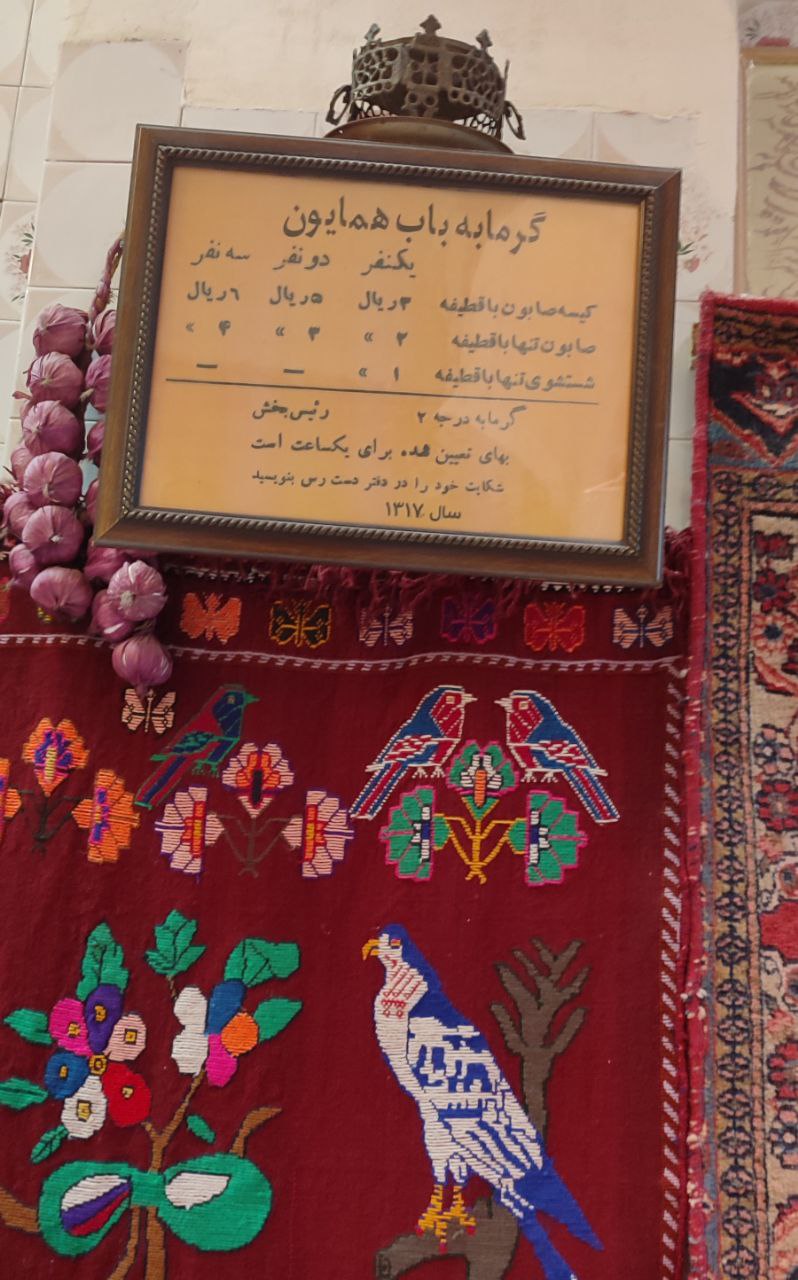 گرمابه باب همایون
یکنفر دو نفر سه نفر
کیسه صابون با قطیفه ۳ ریال ۵ ریال ٦ ریال
صابون تنها با قطیفه ۲ » ۳ » ۴ »
شستشوی تنها با قطیفه ۱ » — —
گرمابه درجه ۲ رئیس بخش
بهای تعیین شده برای یکساعت است
شکایت خود را در دفتر دست رس بنویسید
سال ۱۳۱۷